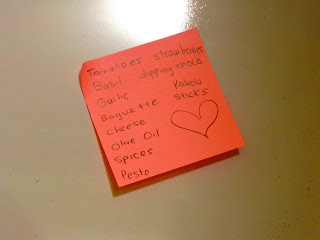 Tomatoes strawberries
Basil dipping choco
Garlic Kabob
Baguette sticks
Cheese
Olive Oil
Spices
Pesto